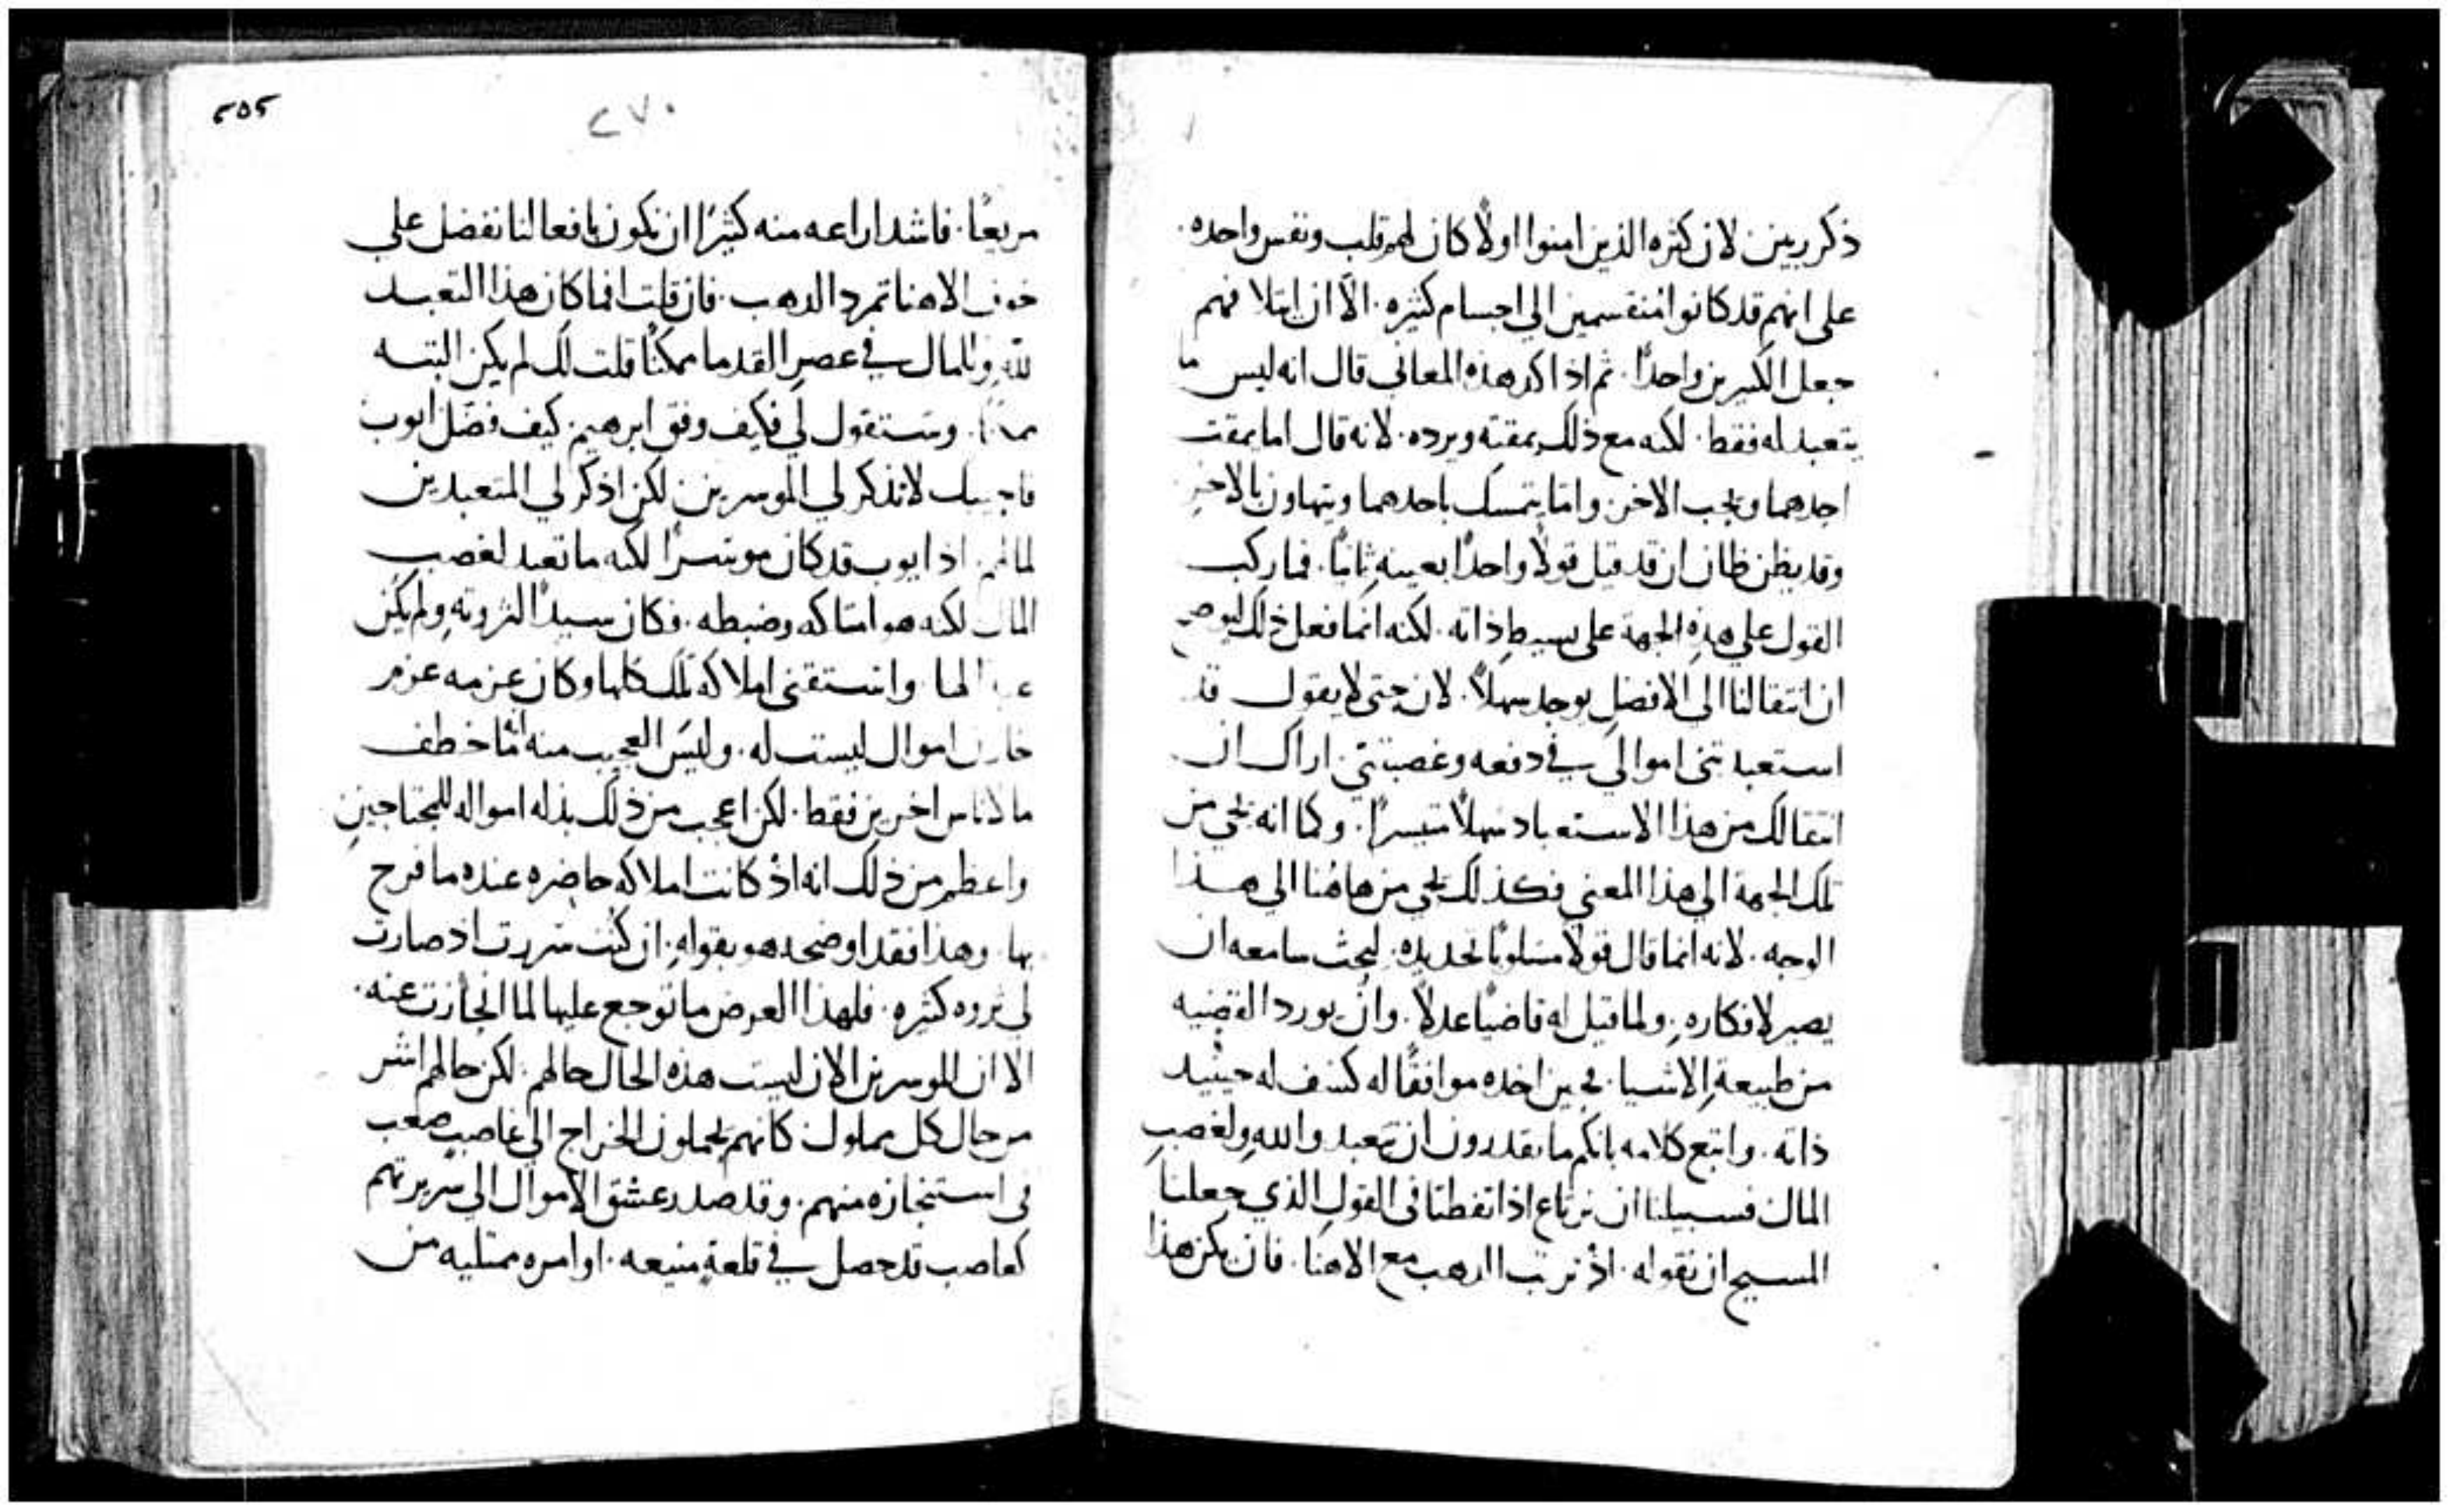 ذكر ربين لان كثره الذين امنوا اولًا كان لهم قلب ونفس واحده.
على انهم قد كانوا منقسمين الي اجسام كثيره. الّا ان ايتلافهم
جعل الكثيرين واحدًا. ثم اذ اكد هذه المعاني قال انه ليس ما
يتعبد له فقط. لكنه مع ذلك يمقته ويرده. لانه قال اما يمقت
احدهما ويحب الاخر. واما يتمسك باحدهما ويتهاون بالاخر
وقد يظن ظان ان قد قيل قولًا واحدًا بعينه ثانيًا. فما ركب
القول علي هذه الجهة على بسيط ذاته. لكنه انما فعل ذلك ليوضح
ان انتقالنا الى الافضل يوجد سهلًا. لان حتى لا يقول قد
استعبدتني اموالي في دفعه وغصبتني. اراك ان
انتقالك من هذا الاستعباد سهلًا متيسرًا. وكما انه يجي من
تلك الجهة الي هذا المعني فكذلك يجي من هاهنا الي هذا
الوجه. لانه انما قال قولًا مسلوبًا تحديده. ليحث سامعه ان
يصير لافكاره. ولما قيل له قاضيًا عدلًا. وان يورد القضيه
من طبيعة الاشيا. فحين اخذه موافقًا له كشف له حينيد
ذاته. واتبع كلامه بانكم ما تقدرون ان تتعبدوا لله ولغصب
المال فسبيلنا ان نرتاع اذا تفطنا في القول الذي جعلنا
المسيح ان نقوله. اذ نرتب الدهب مع الاهنا. فان يكن هذا
٢٧٠
٢٥٥
مريعًا. فاشد ارتاعه منه كثيرًا ان نكون بافعالنا نفضل علي
خوف الاهنا تمرد الدهب. فان قلت افما كان هذا التعبد
لله وللمال في عصر القدما ممكنًا قلت لك لم يكن البته
وستقول لي فكيف وفق ابرهيم. كيف فضل ايوب
فاجيبك لا تذكر لي الموسرين لكن اذكر لي المتعبدين
لمالهم. اذ ايوب قد كان موسرًا لكنه ما تعبد لغصب
المال لكنه هو امتلكه وضبطه. فكان سيدًا لثروته ولم يكن
عبدًا لها. واستقنى املاكه تلك كلها وكان عزمه عزم
خازن اموال ليست له. وليس العجيب منه انه ما خطف
مالًا لاناس اخرين فقط. لكن اعجب من ذلك بذله امواله للمحتاجين
واعظم من ذلك انه اذ كانت املاكه حاضره عنده ما فرح
بها. وهذا فقد اوضحه هو بقوله. ان كنت سررت اذ صارت
لي ثروه كثيره. فلهذا الغرض ما توجع عليها لما انحازت عنه.
الا ان الموسرين الان ليست هذه الحال حالهم. لكن حالهم اشر
من حال كل مملوك كانهم يحملون الخراج الي غاصب صعب
في استنجازه منهم. وقد صدر عشق الاموال الي سريرتهم
كغاصب قد حصل في قلعة منيعه. اوامره ممتليه من